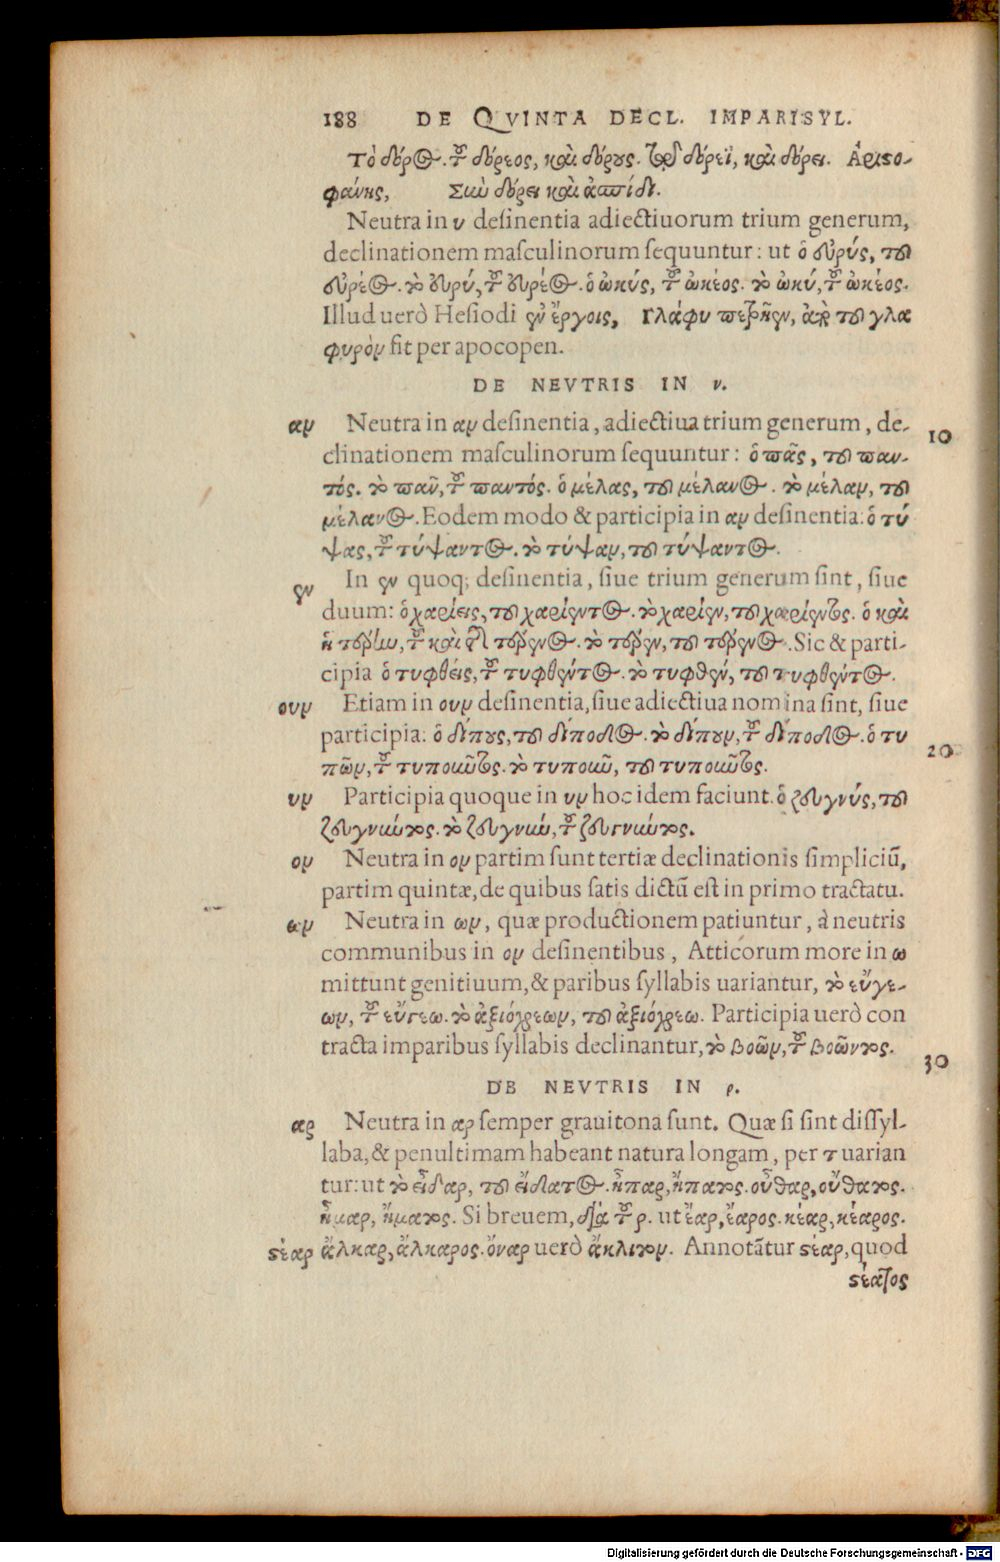 188 DE QVINTA DECL. IMPARISYL.
Τὸ δόρος. τοῦ δόρεος, καὶ δόρους. τῷ δόρεϊ, καὶ δόρει. Ἀριστο-
φάνης, Σὺν δόρει καὶ ἀσπίδι.
Neutra in υ desinentia adiectiuorum trium generum,
declinationem masculinorum sequuntur: ut ὁ εὐρύς, τοῦ
εὐρέος. τὸ εὐρύ, τοῦ εὐρέος. ὁ ὠκύς, τοῦ ὠκέος. τὸ ὠκύ, τοῦ ὠκέος.
Illud uerò Hesiodi ἐν ἔργοις, Γλάφυ πετρῆεν, ἀπὸ τοῦ γλα
φυρὸν fit per apocopen.
DE NEVTRIS IN ν.
αν Neutra in αν desinentia, adiectiua trium generum, de-
clinationem masculinorum sequuntur: ὁ πᾶς, τοῦ παν- 10
τός. τὸ πᾶν, τοῦ παντός. ὁ μέλας, τοῦ μέλανος. τὸ μέλαν, τοῦ
μέλανος. Eodem modo & participia in αν desinentia: ὁ τύ
ψας, τοῦ τύψαντος. τὸ τύψαν, τοῦ τύψαντος.
εν In εν quoq; desinentia, siue trium generum sint, siue
duum: ὁ χαρίεις, τοῦ χαρίεντος. τὸ χαρίεν, τοῦ χαρίεντος. ὁ καὶ
ἡ τέρην, τοῦ καὶ τῆς τέρενος. τὸ τέρεν, τοῦ τέρενος. Sic & parti-
cipia ὁ τυφθείς, τοῦ τυφθέντος. τὸ τυφθέν, τοῦ τυφθέντος.
ουν Etiam in ουν desinentia, siue adiectiua nomina sint, siue
participia: ὁ δίπους, τοῦ δίποδος. τὸ δίπουν, τοῦ δίποδος. ὁ τυ 20
πῶν, τοῦ τυποῦντος. τὸ τυποῦν, τοῦ τυποῦντος.
υν Participia quoque in υν hoc idem faciunt. ὁ ζευγνύς, τοῦ
ζευγνύντος. τὸ ζευγνύν, τοῦ ζευγνύντος.
ον Neutra in ον partim sunt tertiæ declinationis simpliciū,
partim quintæ, de quibus satis dictū est in primo tractatu.
ων Neutra in ων, quæ productionem patiuntur, à neutris
communibus in ον desinentibus, Atticorum more in ω
mittunt genitiuum, & paribus syllabis uariantur, τὸ εὔγε-
ων, τοῦ εὔγεω. τὸ ἀξιόχρεων, τοῦ ἀξιόχρεω. Participia uerò con
tracta imparibus syllabis declinantur, τὸ βοῶν, τοῦ βοῶντος.
30
DE NEVTRIS IN ρ.
αρ Neutra in αρ semper grauitona sunt. Quæ si sint dissyl-
laba, & penultimam habeant natura longam, per τ uarian
tur: ut τὸ εἶδαρ, τοῦ εἴδατος. ἧπαρ, ἥπατος. οὖθαρ, οὔθατος.
ἦμαρ, ἤματος. Si breuem, διὰ τοῦ ρ. ut ἔαρ, ἔαρος. κέαρ, κέαρος.
στέαρ ἄλκαρ, ἄλκαρος. ὄναρ uerò ἄκλιτον. Annotātur στέαρ, quod
στέατος
Digitalisierung gefördert durch die Deutsche Forschungsgemeinschaft - DFG